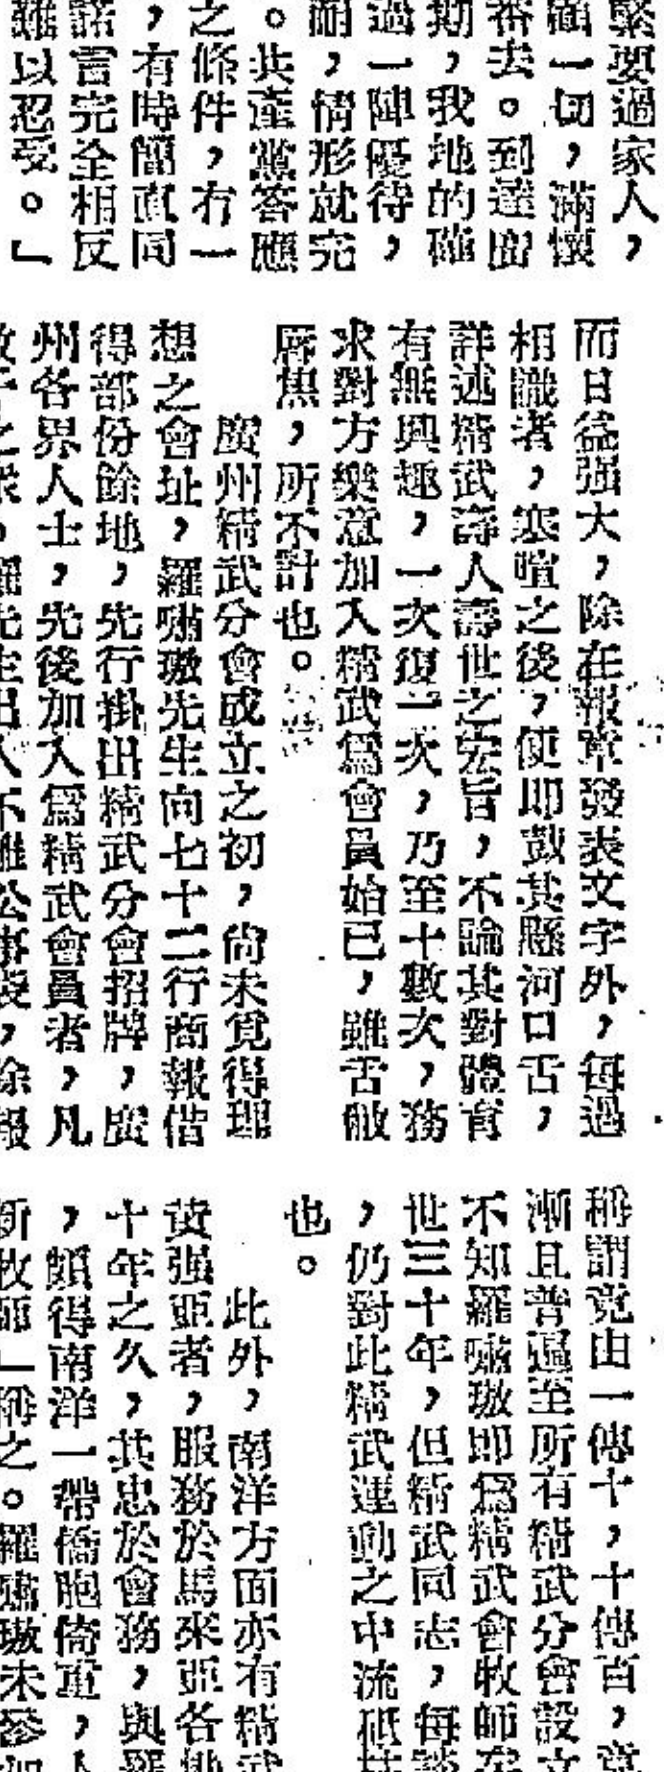 緊要過家人，
顧一切，滿懷
番去。到達
期，我地的確
過一陣優待，
耐，情形就完
。共產黨答應
之條件，有一
，有時簡直同
諾言完全相反
難以忍受。」
而日益强大，除在報章發表文字外，每遇
相識者，寒喧之後，便即鼓其懸河口舌，
詳述精武壽人壽世之宏旨，不論其對體育
有無興趣，一次復二次，乃至十數次，務
求對方樂意加入精武爲會員始已，雖舌敝
唇焦，所不計也。
廣州精武分會成立之初，尙未覓得理
想之會址，羅嘯璈先生向七十二行商報借
得部份餘地，先行掛出精武分會招牌，廣
州各界人士，先後加入爲精武會員者，凡
稱謂竟由一傳十，十傳百，
漸且普遍至所有精武分會設立
不知羅嘯璈即爲精武會牧師
世三十年，但精武同志，每談
，仍對此精武運動之中流砥
也。
此外，南洋方面亦有精武
黃强亞者，服務於馬來亞各
十年之久，其忠於會務，與羅
，頗得南洋一帶僑胞倚重，
新牧師」稱之。羅嘯璈未參加